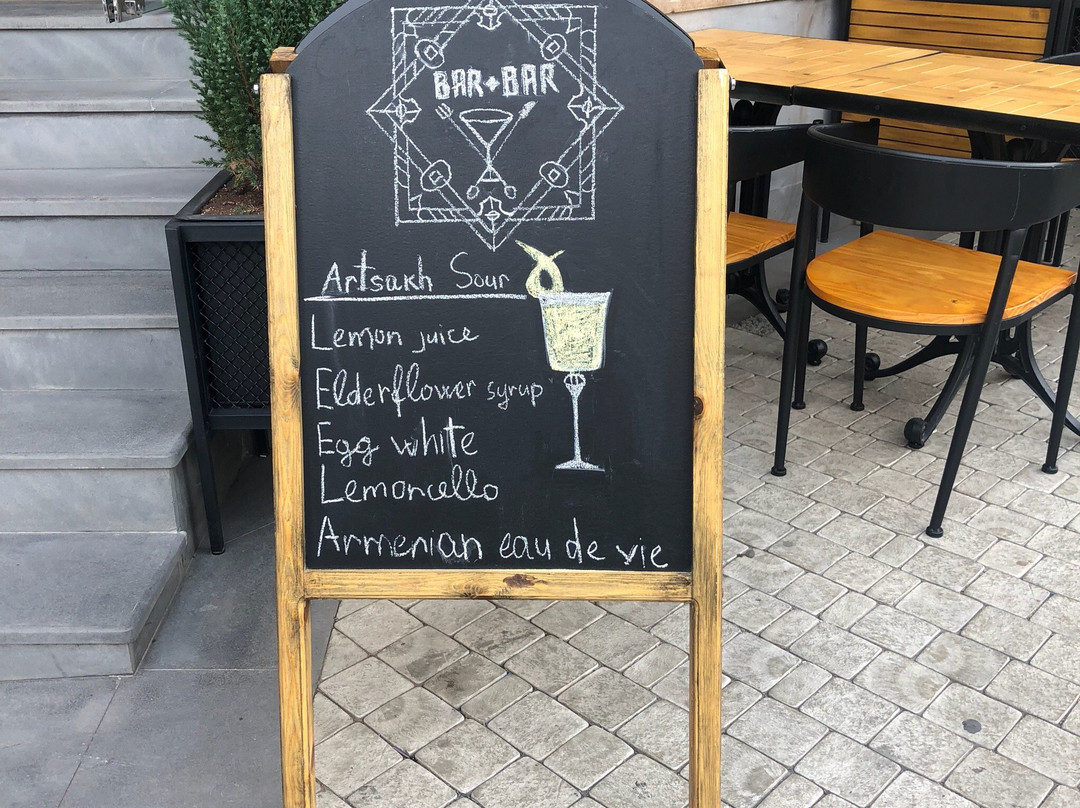 BAR+BAR
Artsakh Sour
Lemon juice
Elderflower syrup
Egg white
Lemoncello
Armenian eau de vie